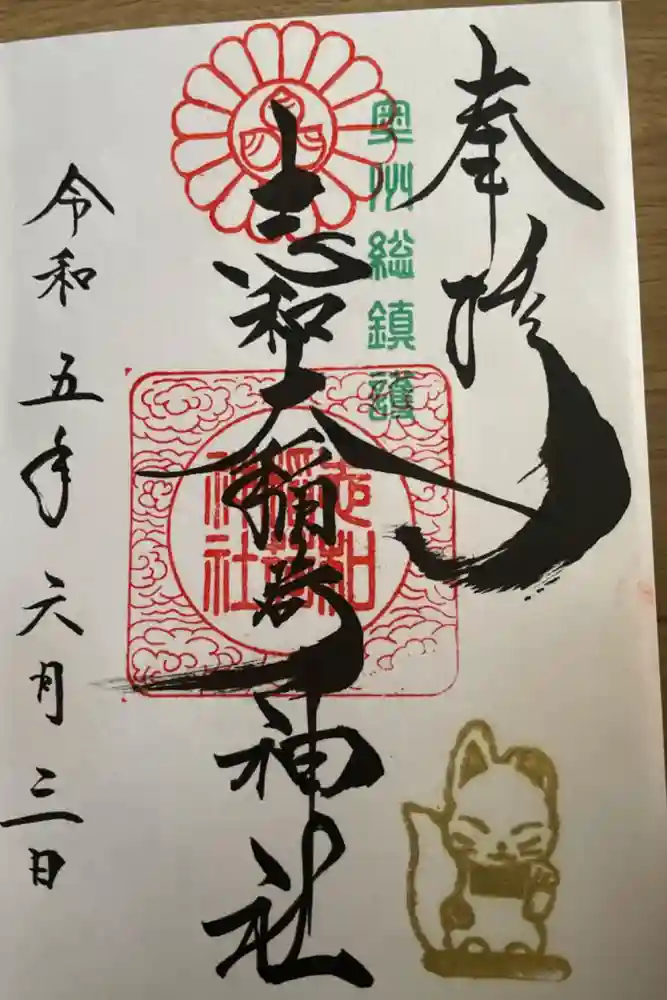 奉拝
奥州総鎮護
志和大稲荷神社
志和
稲荷
神社
令和五年六月三日